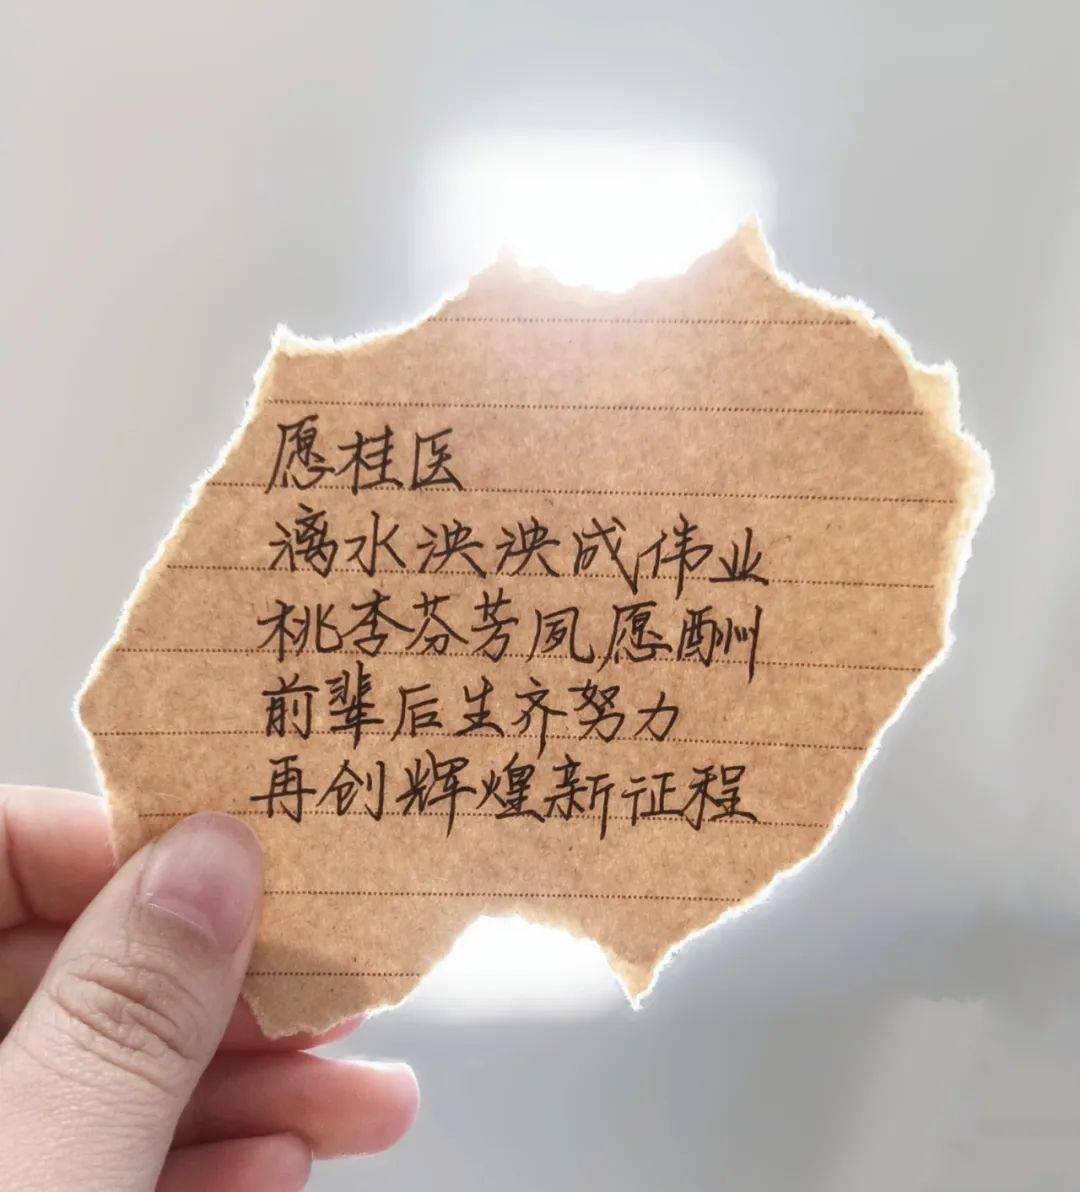 愿桂医
漓水泱泱成伟业
桃李芬芳夙愿酬
前辈后生齐努力
再创辉煌新征程